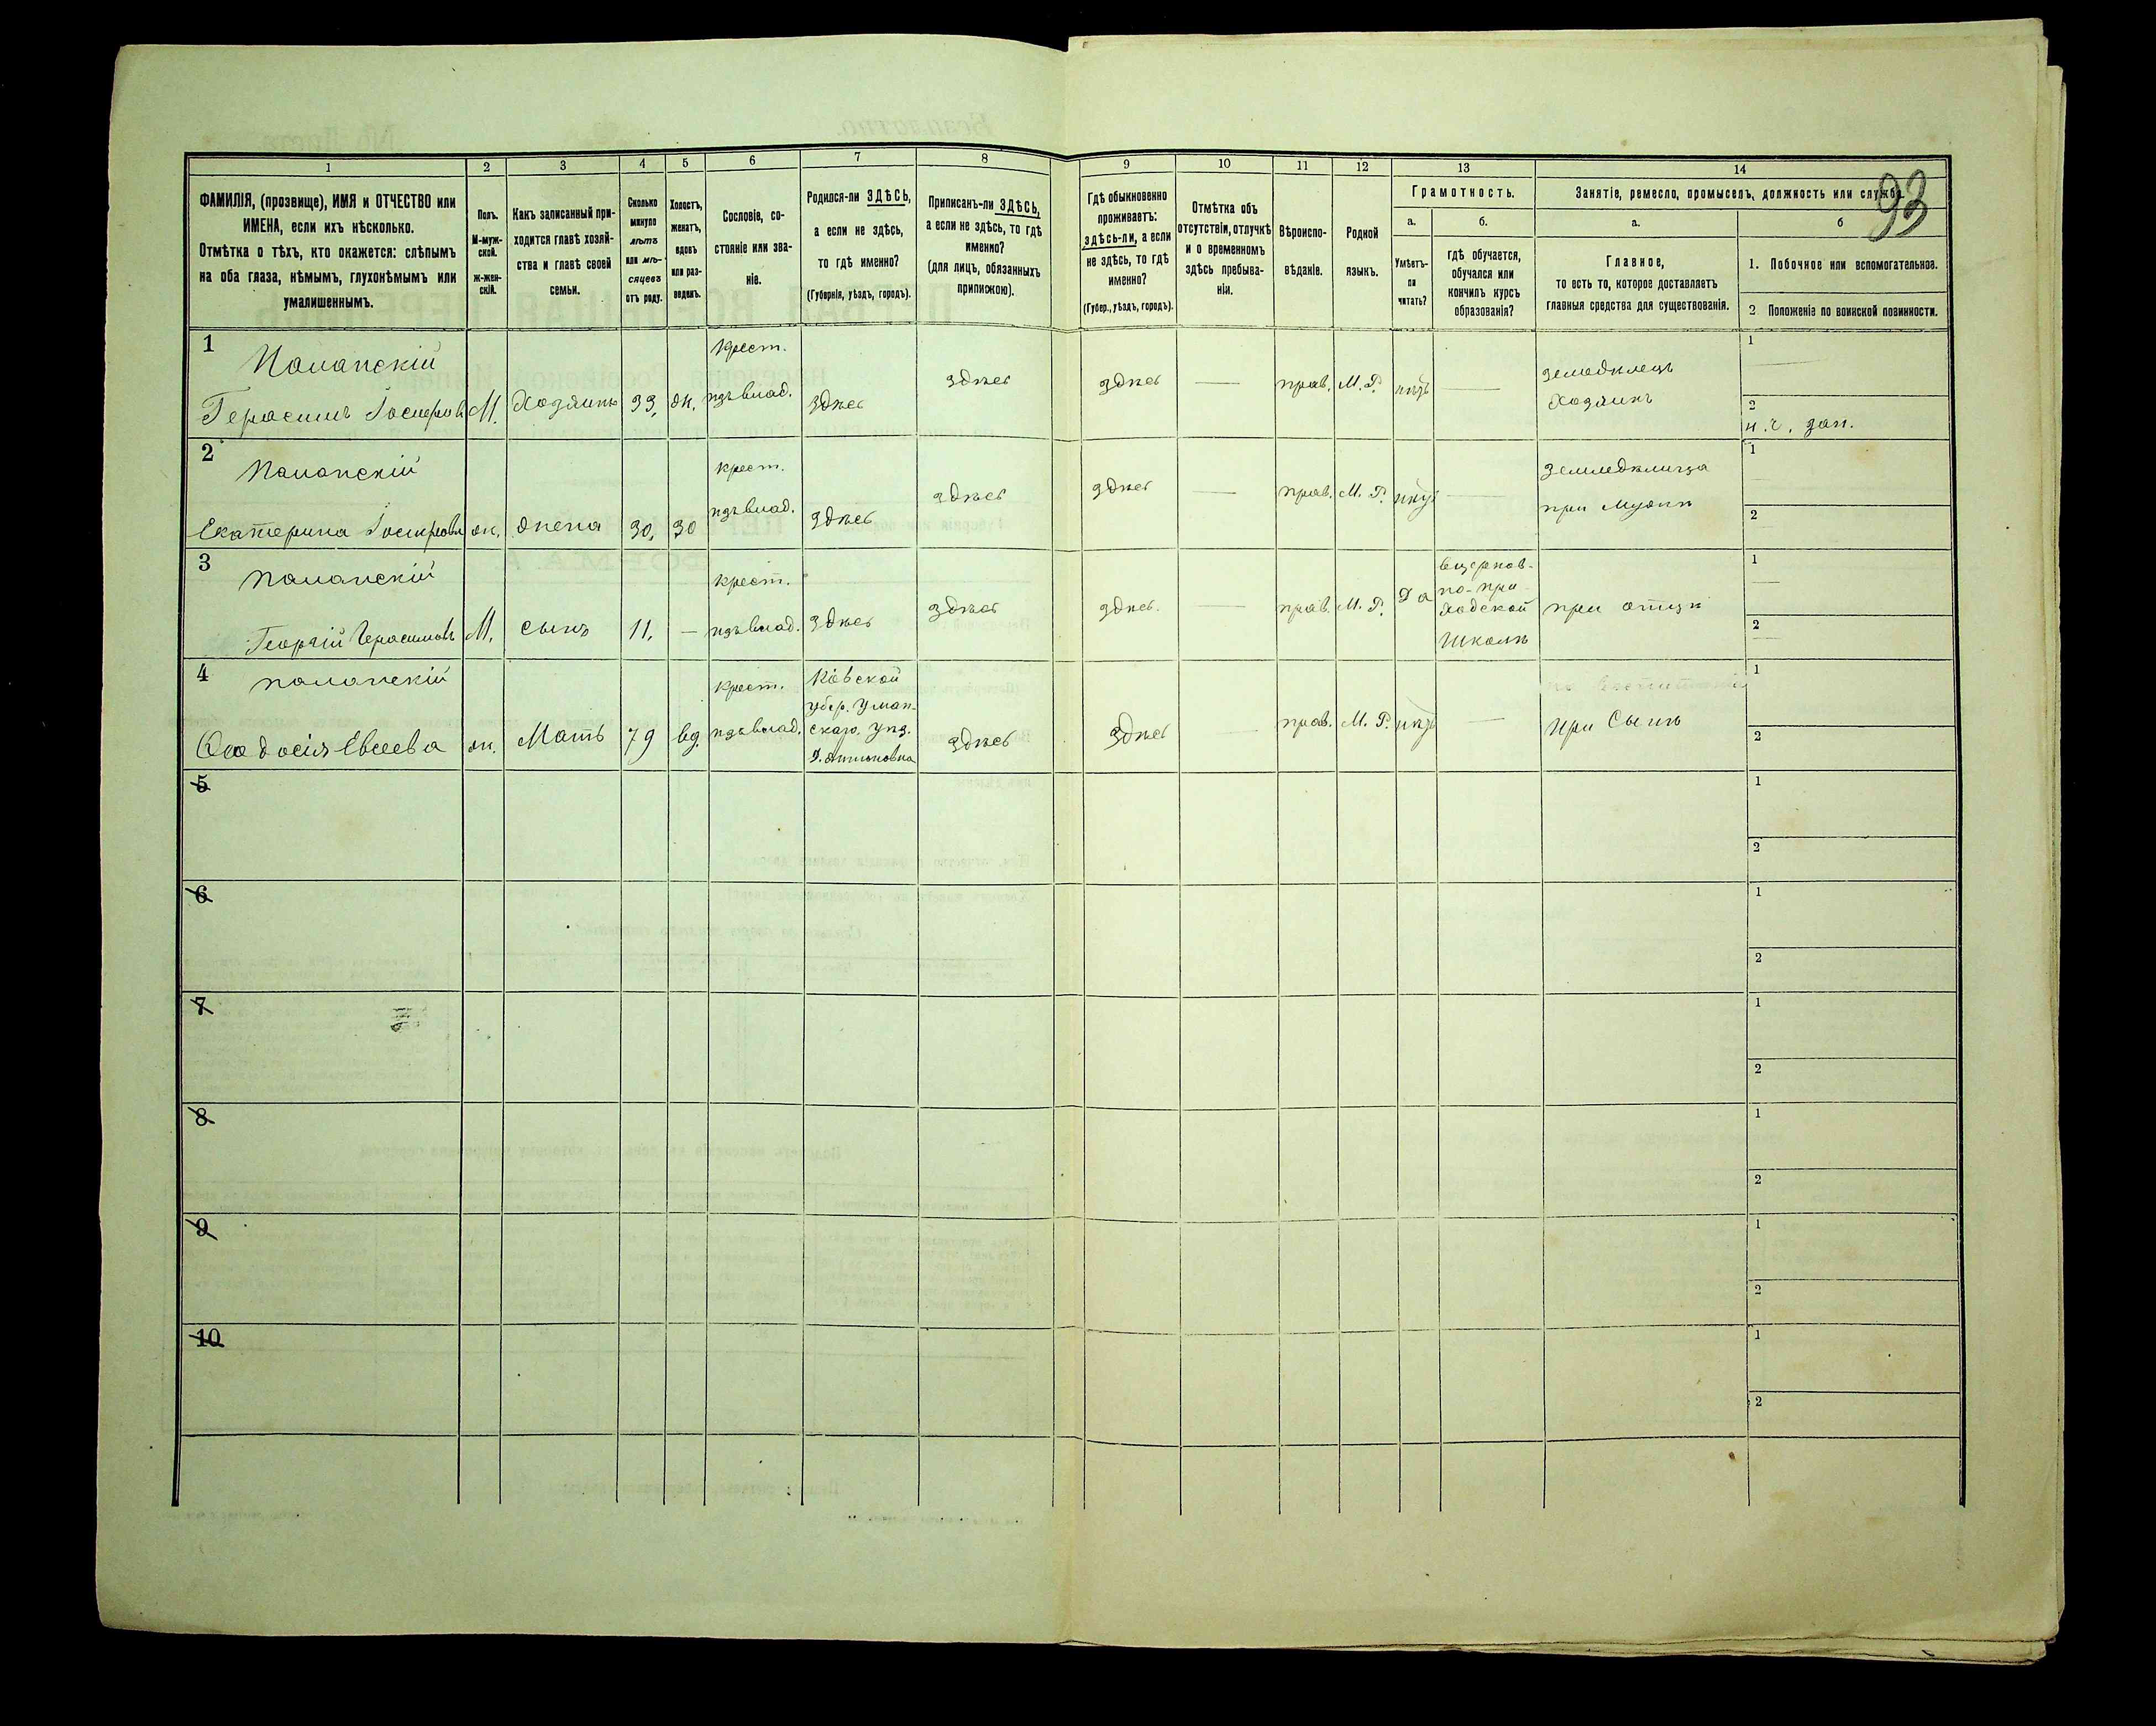 93
1 2 3 4 5 6 7 8 9 10 11 12 13 14
ФАМИЛІЯ, (прозвище), ИМЯ и ОТЧЕСТВО или
ИМЕНА, если ихъ нѣсколько.
Отмѣтка о тѣхъ, кто окажется: слѣпымъ
на оба глаза, нѣмымъ, глухонѣмымъ или
умалишеннымъ.
Полъ.
М-муж-
ской.
ж-жен-
скій.
Какъ записанный при-
ходится главѣ хозяй-
ства и главѣ своей
семьи.
Сколько
минуло
лѣтъ
или мѣ-
сяцевъ
отъ роду.
Холостъ,
женатъ,
вдовъ
или раз-
веденъ.
Сословіе, со-
стояніе или зва-
ніе.
Родился-ли ЗДѢСЬ,
а если не здѣсь,
то гдѣ именно?
(Губернія, уѣздъ, городъ).
Приписанъ-ли ЗДѢСЬ,
а если не здѣсь, то гдѣ
именно?
(для лицъ, обязанныхъ
припискою).
Гдѣ обыкновенно
проживаетъ:
здѣсь-ли, а если
не здѣсь, то гдѣ
именно?
(Губер., уѣздъ, городъ).
Отмѣтка объ
отсутствіи, отлучкѣ
и о временномъ
здѣсь пребыва-
ніи.
Вѣроиспо-
вѣданіе.
Родной
языкъ.
Грамотность.
а.
Умѣетъ-
ли
читать?
б.
гдѣ обучается,
обучался или
кончилъ курсъ
образованія?
Занятіе, ремесло, промыселъ, должность или служба.
а.
Главное,
то есть то, которое доставляетъ
главныя средства для существованія.
б
1. Побочное или вспомогательное.
2 Положеніе по воинской повинности.
1
Герасимъ
М.
Хозяинъ
33,
жн.
крест.
здѣсь
здѣсь
здѣсь
—
прав.
М. Р.
нѣтъ
—
земледѣлецъ
Хозяинъ
1
2
н. ч. зап.
2
Екатерина
жн.
жена
30,
крест.
здѣсь
здѣсь
здѣсь
—
прав.
М. Р.
нѣтъ
—
Земледѣлица
при Мужѣ
1
2
3
Георгій Герасимовъ
М.
сынъ
11.
—
крест.
здѣсь
здѣсь
здѣсь.
—
прав.
М. Р.
Да
вцерков-
но-при-
ходской
Школѣ
при отцѣ
1
2
4
Евсеева
жн.
Мать
79
вд.
крест.
Кіевской
губер. Уман-
скаго. Уѣз.
здѣсь
здѣсь
прав.
М. Р.
нѣтъ
—
при Сынѣ
1
2
5
1
2
6
1
2
7
1
2
8
1
2
9
1
2
10
1
2